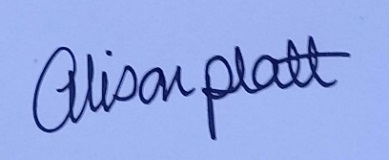 Alison platt